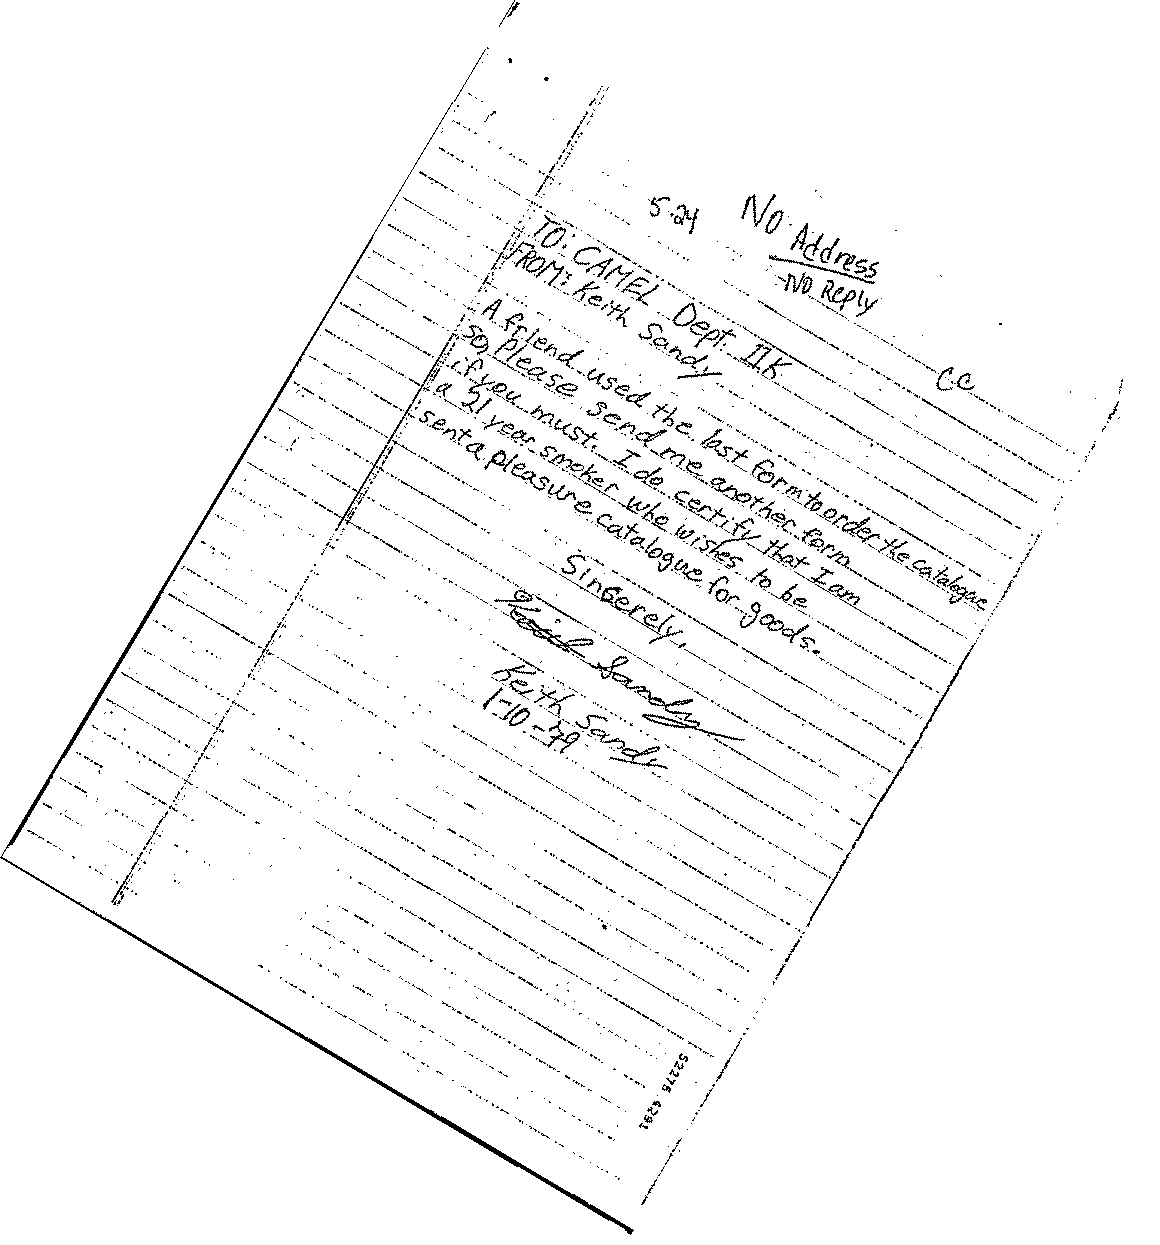 5-24
No Address
-No Reply
CC
TO: CAMEL Dept. IIK
FROM: Keith Sandy
A friend used the last form to order the catalogue
so, please send me another form
if you must. I do certify that I am
a 21 year smoker who wishes to be
sent a pleasure catalogue for goods.
Sincerely,
Keith Sandy
Keith Sandy
1-10-79
52276 4291